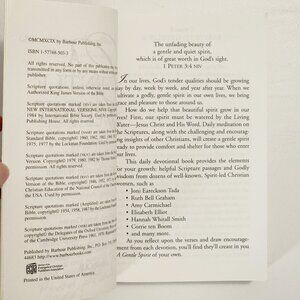 ©MCMXCIX by Barbour Publishing, Inc.
ISBN 1-57748-503-
All rights reserved. No part of this publication may be
transmitted in any form or by any means without written
publisher.
Scripture quotations, unless otherwise noted, are
Authorized King James Version of the Bible.
Scripture quotations marked are taken from the
NEW INTERNATIONAL VERSION®. NIV®. Copyright
1984 by International Bible Society. Used by permission
Publishing House. All rights reserved.
Scripture quotations marked are taken from the
Standard Bible, copyright 1960, 1962, 1963,
1975, 1977 by the Lockman Foundation. Used by permission.
Scripture quotations marked are taken from the
Version. Copyright © 1979, 1980, 1982 by Thomas Nelson
rights reserved.
Scripture quotations marked are taken from the
Version of the Bible, copyright
Christian Education of the National Council of the Churches
the USA. Used by permission.
Scripture quotations marked
copyright © 1954, 1958, 1987 by the Lockman
permission.
Scripture quotations marked are taken from
copyright © by the Delegates of the Oxford University Press
of the Cambridge University Press 1961, 1970
Published by Barbour Publishing, Inc., P.O. Box
44683 http://www.barbourbooks.com
Evangelical Christian
Publishers Association
Printed in the United States of America.
The unfading beauty of
a gentle and quiet spirit,
which is of great worth in God's sight.
1 PETER 3:4 NIV
In our lives, God's tender qualities should be growing
day by day, week by week, and year after year. When we
cultivate a godly, gentle spirit in our own lives, we bring
grace and pleasure to those around us.
How do we help that beautiful spirit grow in our
lives? First, our spirit must be watered by the Living
Water—Jesus Christ and His Word. Daily meditation on
the Scriptures, along with the challenging and encouraging
insights of other Christians, will create a gentle spirit
ready to provide comfort and shelter for those who are in
need.
This daily devotional book provides the elements
for your growth: helpful Scripture passages and Godly
wisdom from dozens of well-known, Spirit-led Christian
women, such as
• Joni Eareckson Tada
• Ruth Bell Graham
• Amy Carmichael
• Elisabeth Elliot
• Hannah Whitall Smith
• Corrie ten Boom
• and many more.
As you reflect upon the verses and draw encouragement
from each devotion, you'll find they're creating in you
A Gentle Spirit of your own.